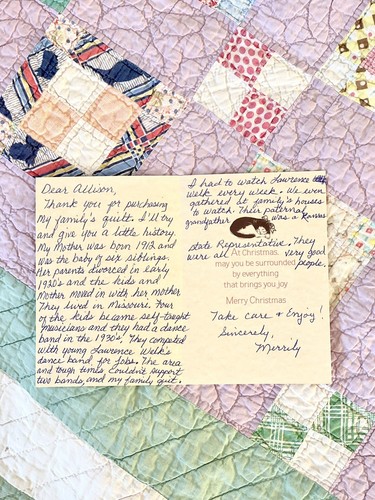 Dear Allison,
Thank you for purchasing
my family's quilt. I'll try
and give you a little history.
My Mother was born 1912 and
was the baby of six siblings.
Her parents divorced in early
1920's and the kids and
Mother moved in with her mother.
They lived in Missouri. Four
of the kids became self-taught
musicians and they had a dance
band in the 1930's. They competed
with young Lawrence Welk's
dance band for jobs. The area
and tough times, couldn't support
two bands, and my family quit.
I had to watch Lawrence
Welk every week. We even
gathered at family's houses
to watch. Their paternal
grandfather was a Kansas
state Representative. They
were all very good
people.
At Christmas
may you be surrounded
by everything
that brings you joy
Merry Christmas
Take care & Enjoy!
Sincerely,
Merrily